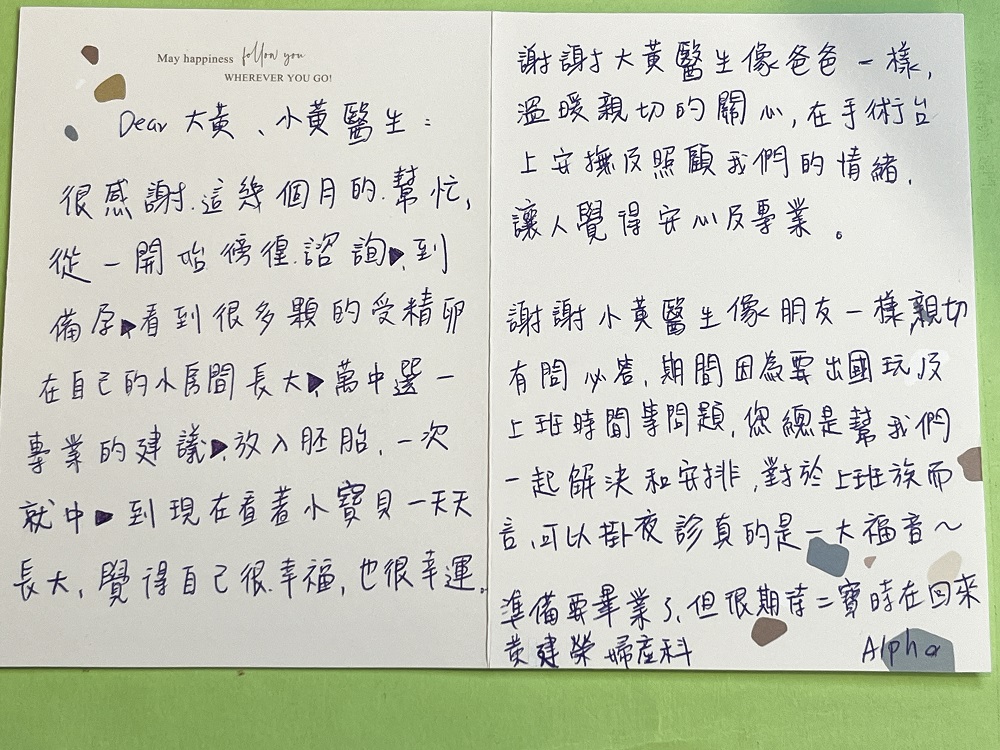 May happiness follow you
WHEREVER YOU GO!
Dear 大黃、小黃醫生：
很感謝.這幾個月的.幫忙,
從一開始徬徨.諮詢▶.到
備孕▶看到很多顆的受精卵
在自己的小房間長大▶萬中選一
專業的建議▶放入胚胎,一次
就中▶到現在看著小寶貝一天天
長大,覺得自己很.幸福,也很幸運。
謝謝大黃醫生像爸爸一樣,
溫暖親切的關心,在手術台
上安撫及照顧我們的情緒,
讓人覺得安心及專業。
謝謝小黃醫生像朋友一樣,親切
有問必答,期間因為要出國玩及
上班時間等問題,您總是幫我們
一起解決和安排,對於上班族而
言,可以掛夜診真的是一大福音～
準備要畢業了,但很期待二寶時在回來
黃建榮婦產科 Alpha